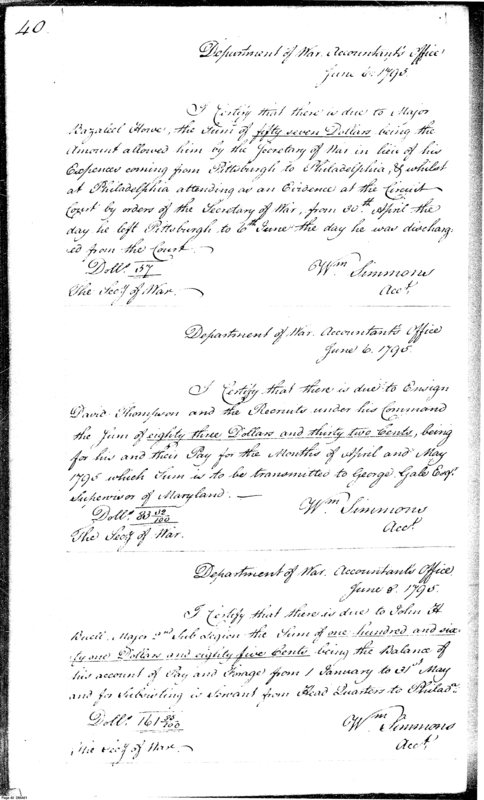 40.
Department of War. Accountant's Office
June 6. 1795.
I Certify that there is due to Major
Bazaleel Howe, the Sum of fifty seven Dollars being the
Amount allowed him by the Secretary of War in lieu of his
Expences coming from Pittsburgh to Philadelphia, & whilst
at Philadelphia attending as an Evidence at the Circuit
Court by orders of the Secretary of War, from 30th April the
day he left Pittsburgh to 6th June the day he was discharg
ed from the Court.
Dolls 57
Wm Simmons
The Secy of War.
Acct.
Department of War. Accountant's Office
June 6. 1795.
I Certify that there is due to Ensign
David Thompson and the Recruits under his Command
the Sum of eighty three Dollars and thirty two Cents, being
for his and their Pay for the Months of April and May
1795 which Sum is to be transmitted to George Gale Esqr.
Supervisor of Maryland.
Wm Simmons
Dolls 83 32/100
Acct.
The Secy of War.
Department of War. Accountant's Office
June 8. 1795.
I Certify that there is due to John H
Buell Major 2nd Sub Legion the Sum of one hundred and six
ty one Dollars and eighty five Cents being the Balance of
his account of Pay and Forage from 1 January to 31st May
and for Subsisting is Servant from Head Quarters to Philada.
Dolls 161 85/100
Wm Simmons
The Secy of War.
Acct.